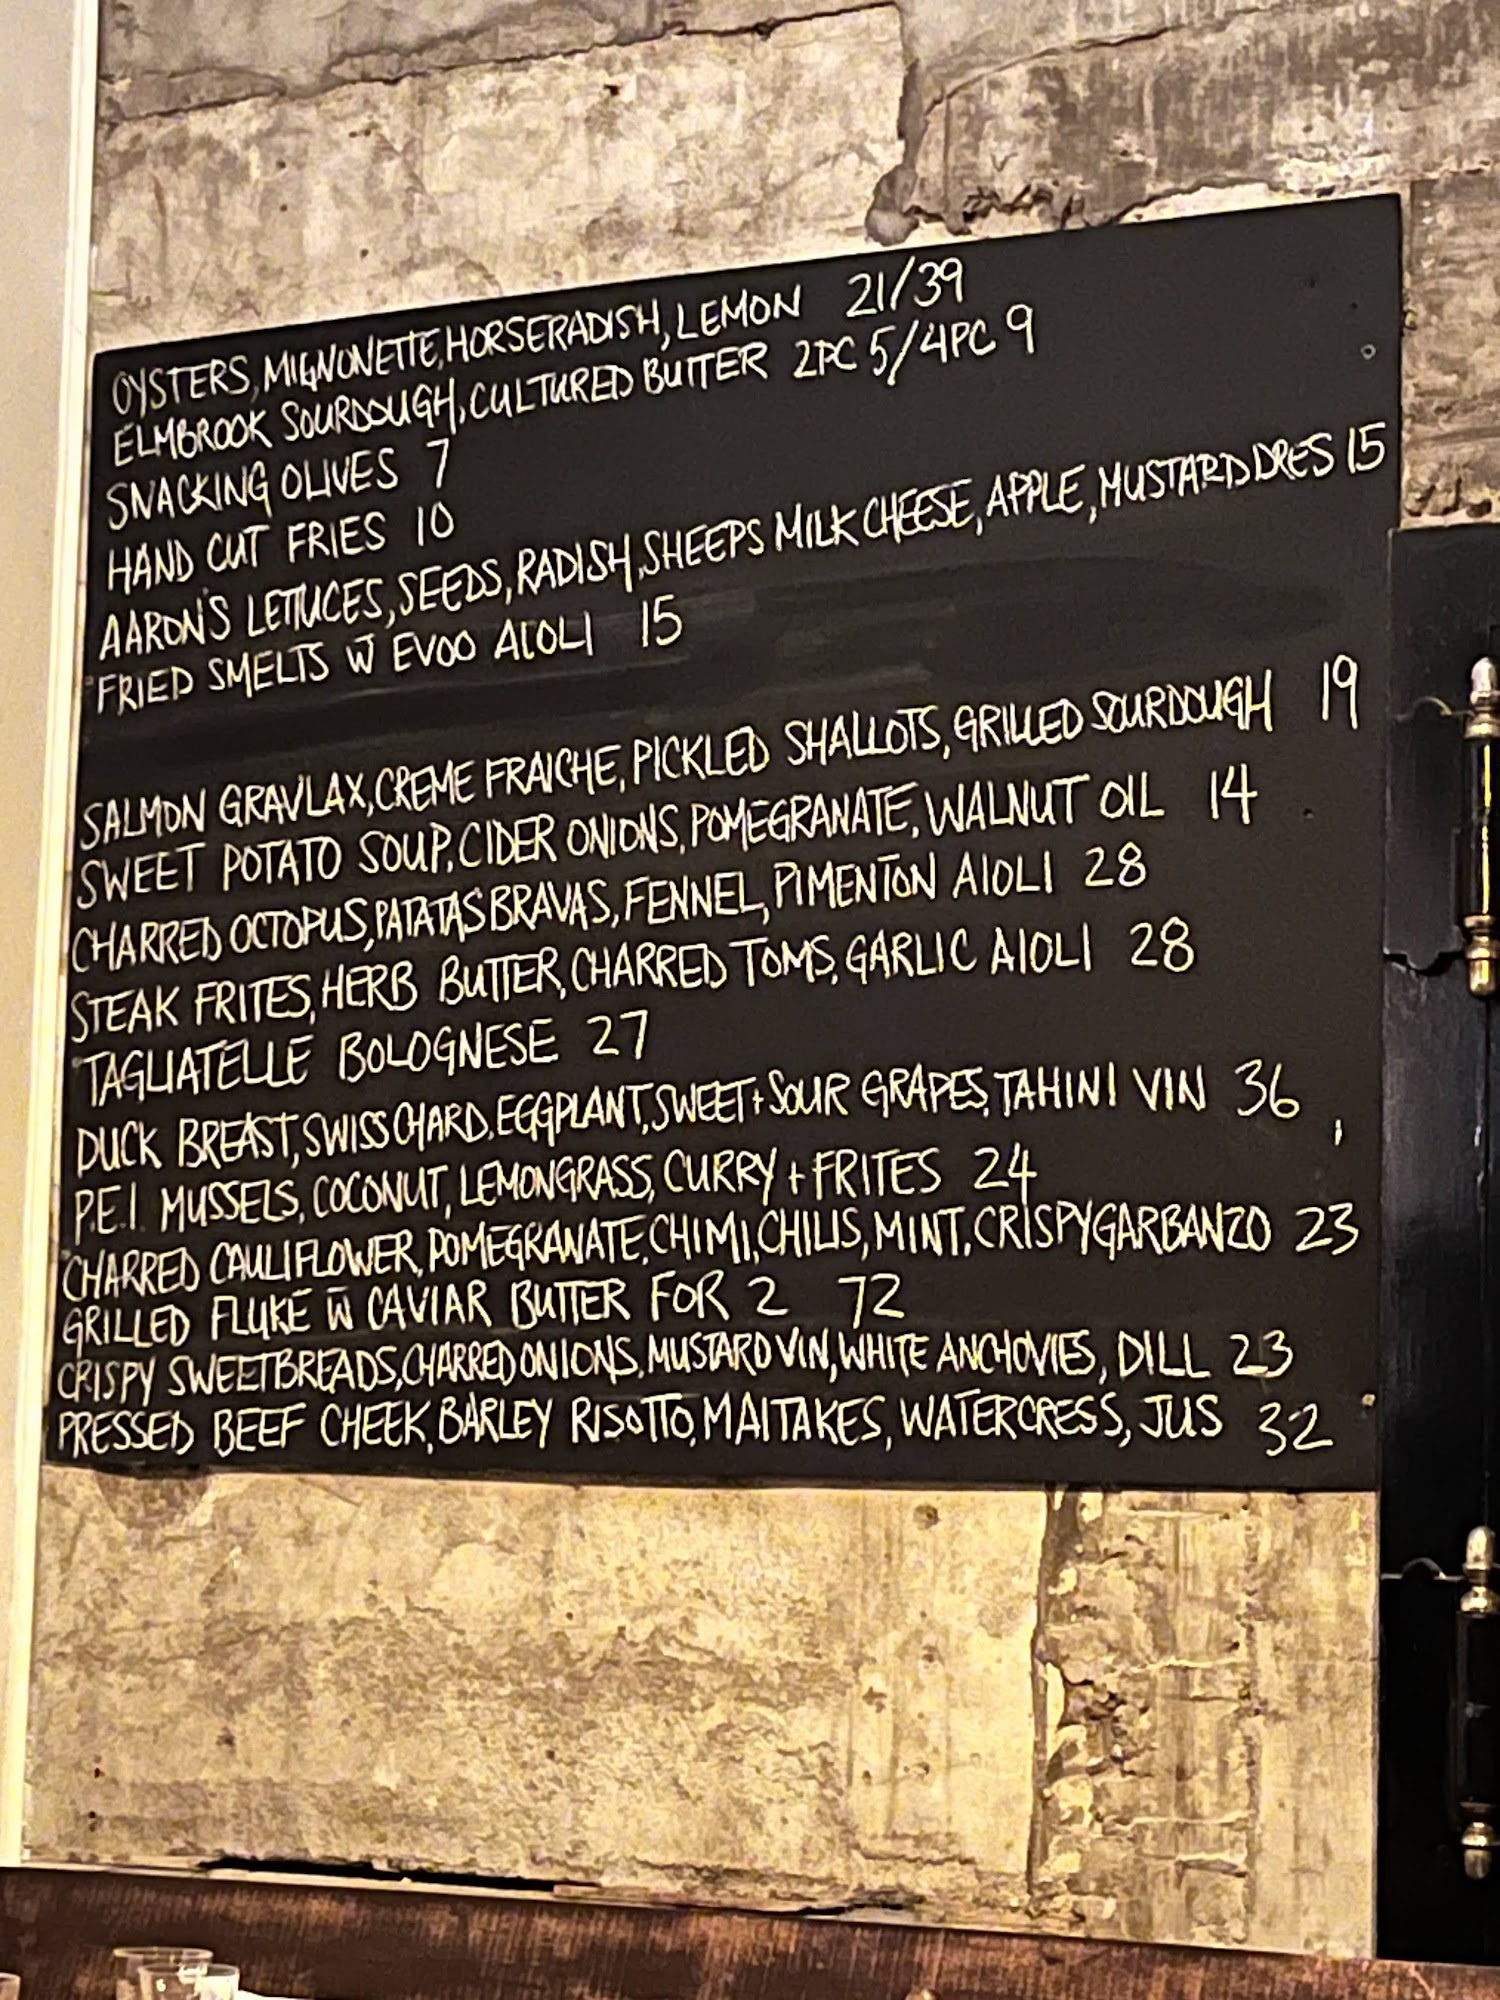 OYSTERS, MIGNONETTE, HORSERADISH, LEMON 21/39
ELMBROOK SOURDOUGH, CULTURED BUTTER 2PC 5/4PC 9
SNACKING OLIVES 7
HAND CUT FRIES 10
AARON'S LETTUCES, SEEDS, RADISH, SHEEPS MILK CHEESE, APPLE, MUSTARD DRES 15
FRIED SMELTS W EVOO AIOLI 15
SALMON GRAVLAX, CREME FRAICHE, PICKLED SHALLOTS, GRILLED SOURDOUGH 19
SWEET POTATO SOUP, CIDER ONIONS, POMEGRANATE, WALNUT OIL 14
CHARRED OCTOPUS, PATATAS BRAVAS, FENNEL, PIMENTON AIOLI 28
STEAK FRITES, HERB BUTTER, CHARRED TOMS, GARLIC AIOLI 28
TAGLIATELLE BOLOGNESE 27
DUCK BREAST, SWISS CHARD, EGGPLANT, SWEET + SOUR GRAPES, TAHINI VIN 36
P.E.I. MUSSELS, COCONUT, LEMONGRASS, CURRY + FRITES 24
CHARRED CAULIFLOWER, POMEGRANATE, CHIMI, CHILIS, MINT, CRISPY GARBANZO 23
GRILLED FLUKE W CAVIAR BUTTER FOR 2 72
CRISPY SWEETBREADS, CHARRED ONIONS, MUSTARD VIN, WHITE ANCHOVIES, DILL 23
PRESSED BEEF CHEEK, BARLEY RISOTTO, MAITAKES, WATERCRESS, JUS 32